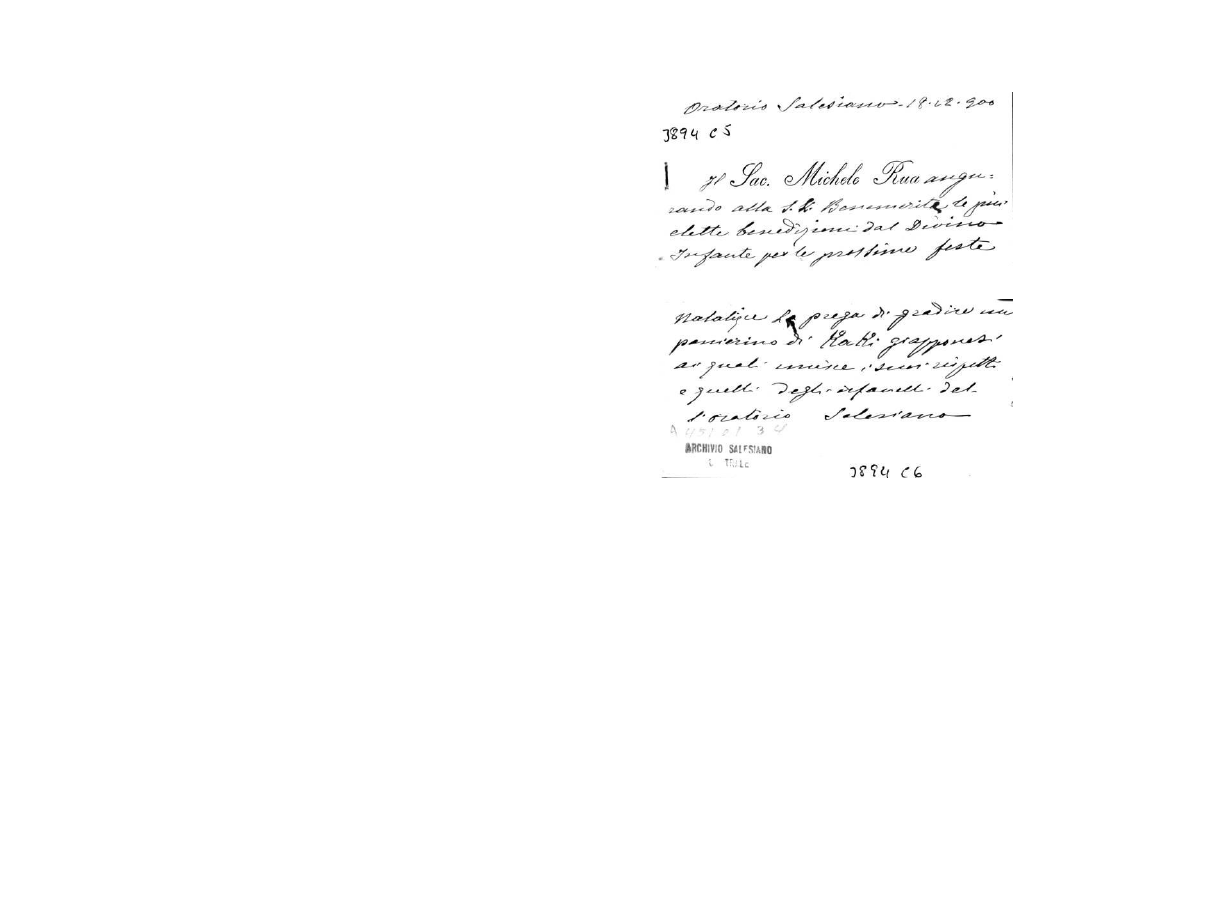 Oratorio Salesiano - 18.12.900
3894 C5
Il Sac. Michele Rua augu-
rando alla S.V. Benemerita le più
elette benedizioni dal Divino
Infante per le prossime feste
Natalizie la prega di gradire un
panierino di KaKi giapponesi
ai quali unisce i suoi rispetti
e quelli degli orfanelli del-
l'oratorio Salesiano
ARCHIVIO SALESIANO
3894 C6